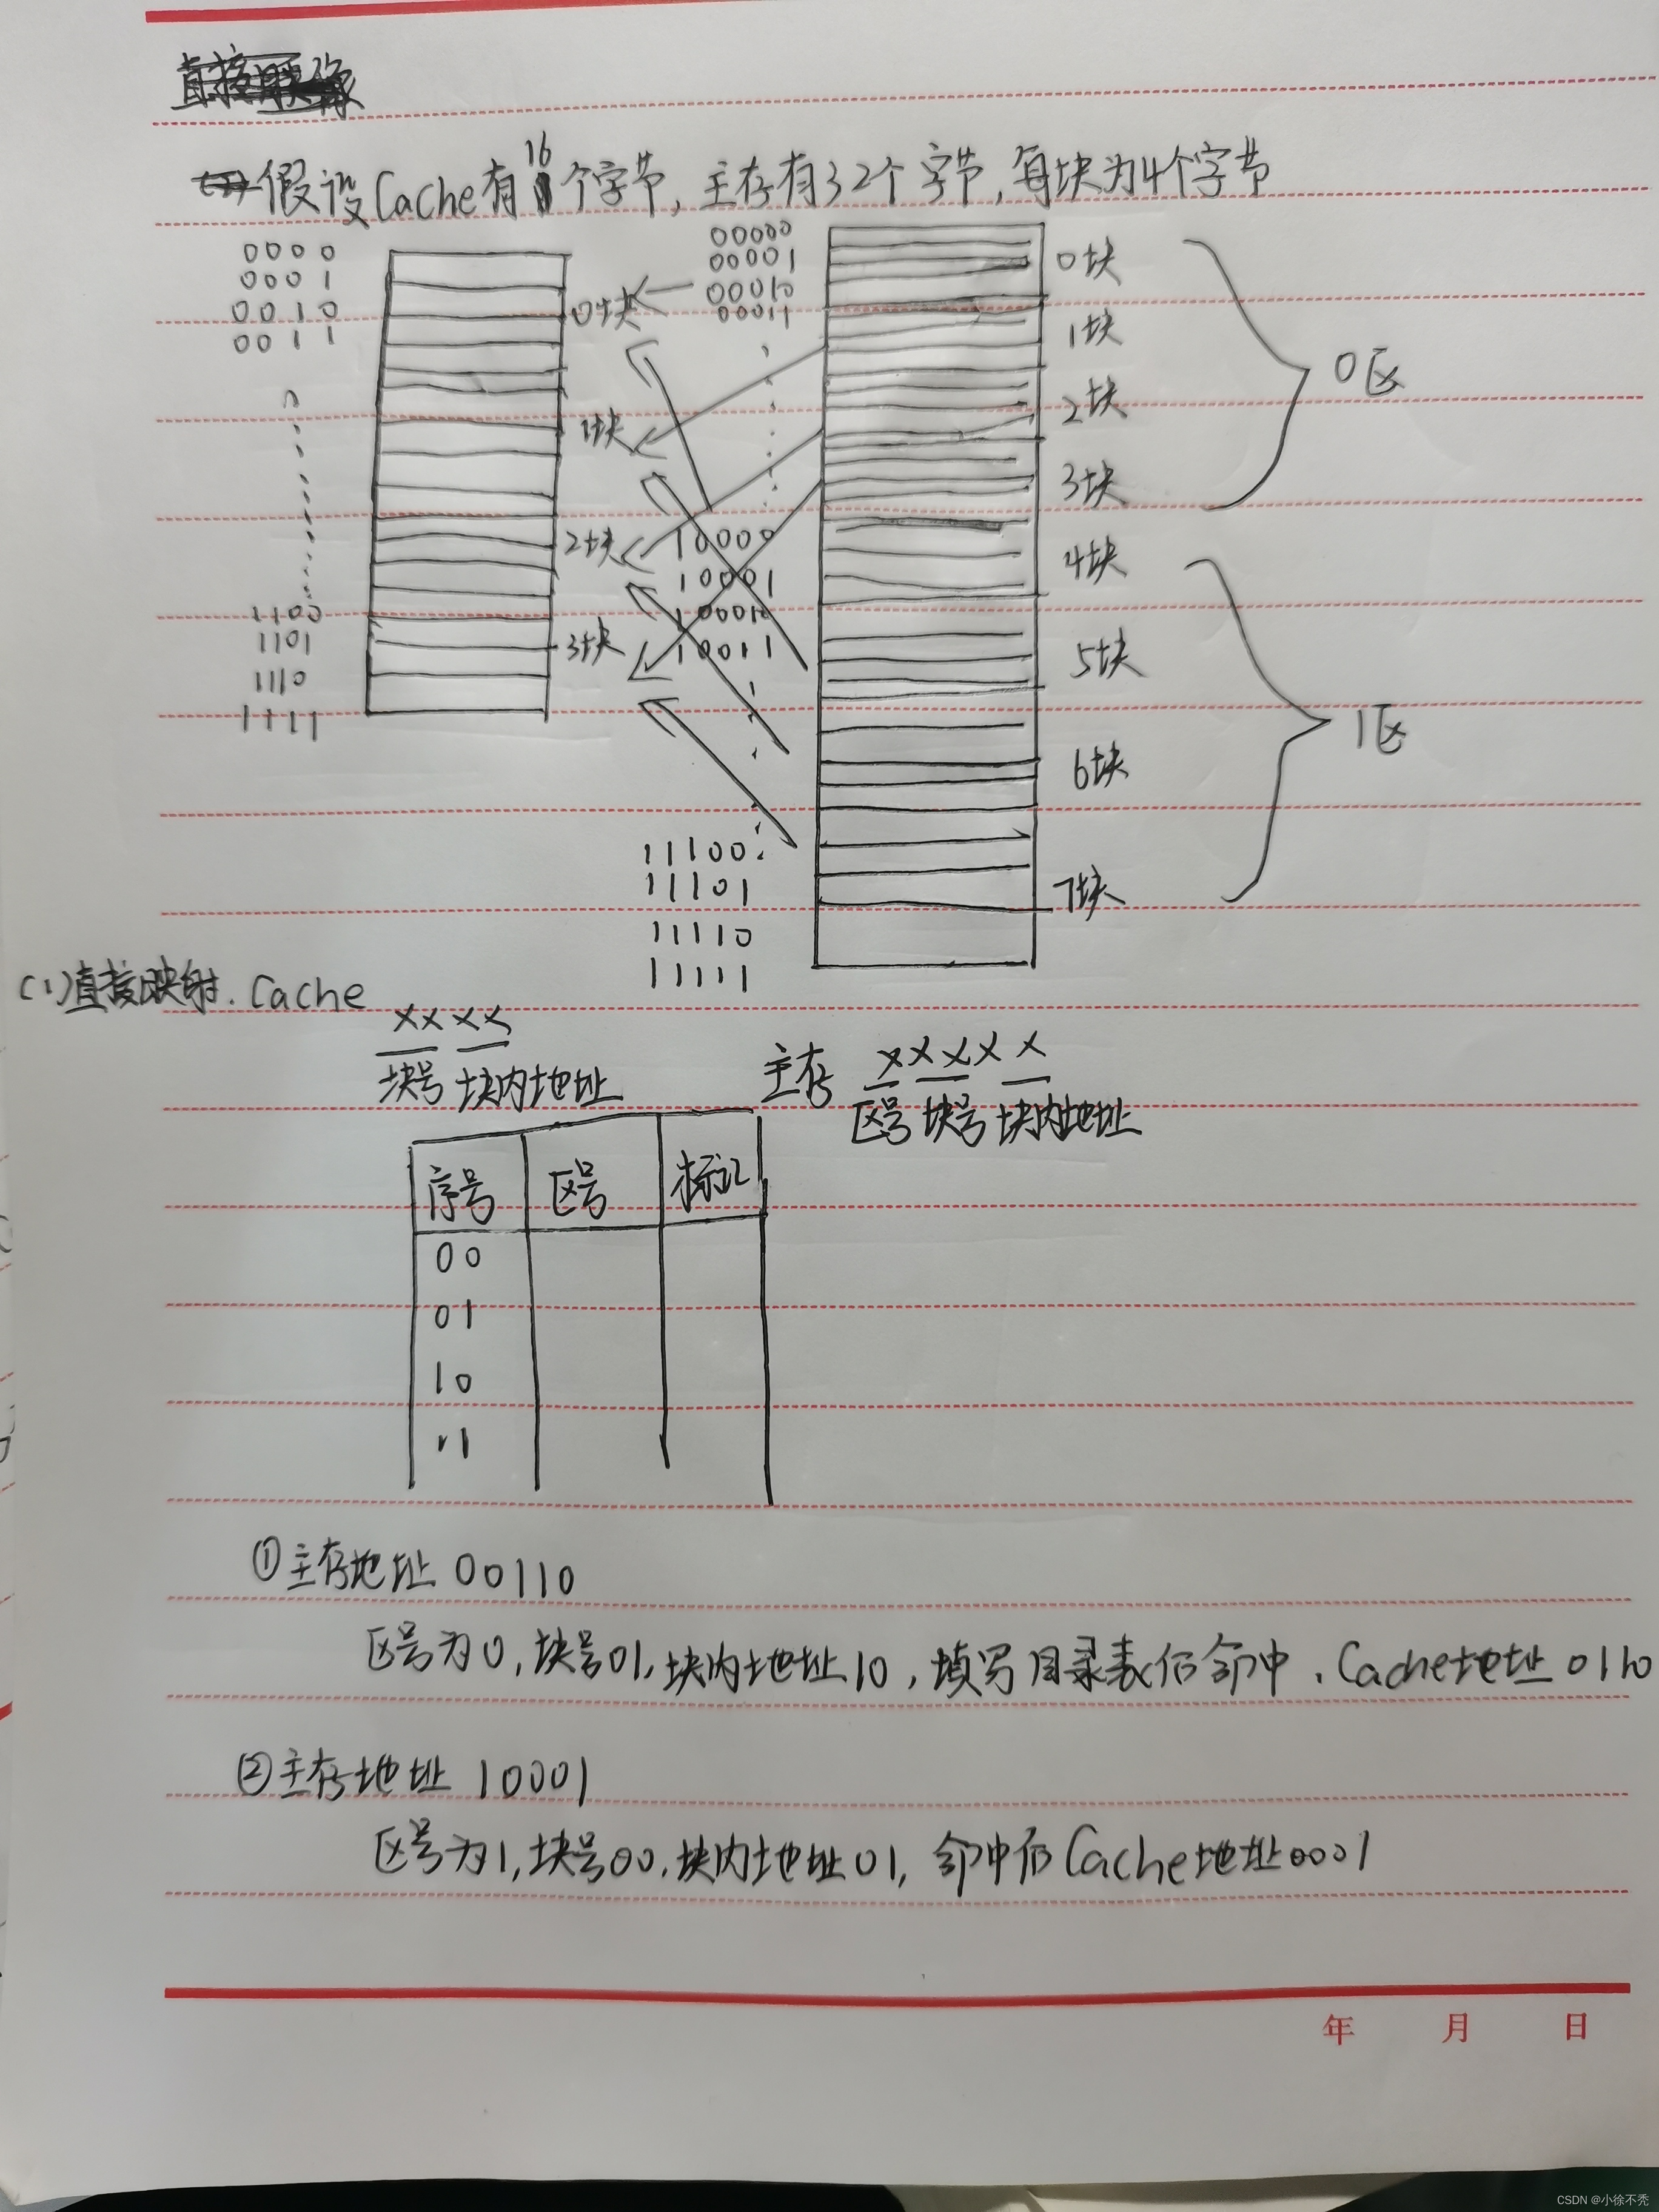 直接映像
假设Cache有16个字节,主存有32个字节,每块为4个字节
0000
0001
0010
0011
1100
1101
1110
1111
0块
1块
2块
3块
00000
00001
00010
00011
10000
10001
10010
10011
11100
11101
11110
11111
0块
1块
2块
3块
4块
5块
6块
7块
0区
1区
(1)直接映射. Cache
XX XX
块号 块内地址
主存 XXXX X
区号 块号 块内地址
序号 区号 标记
00
01
10
11
①主存地址 00110
区号为0,块号01,块内地址10,填写目录表后命中.Cache地址0110
②主存地址 10001
区号为1,块号00.块内地址01,命中后Cache地址0001
年 月 日
CSDN @小徐不秃